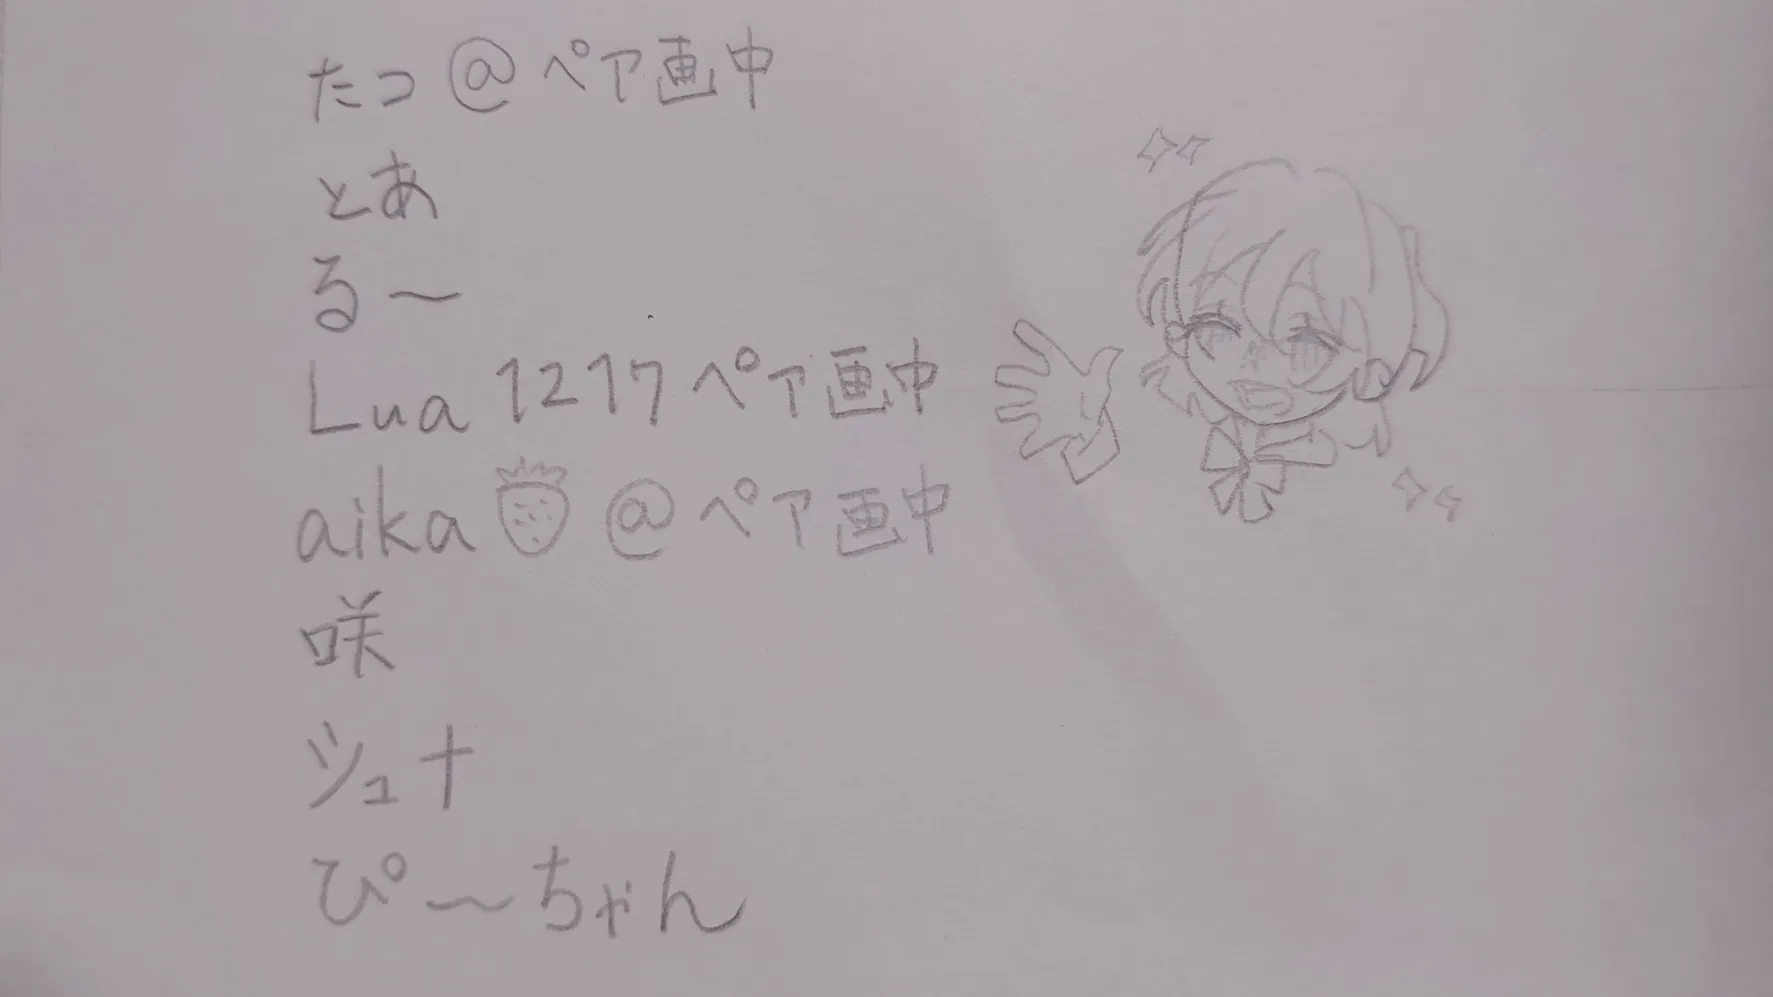 たつ@ペア画中
とあ
る〜
Lua1217ペア画中
aika🍓@ペア画中
咲
シュナ
ぴ〜ちゃん